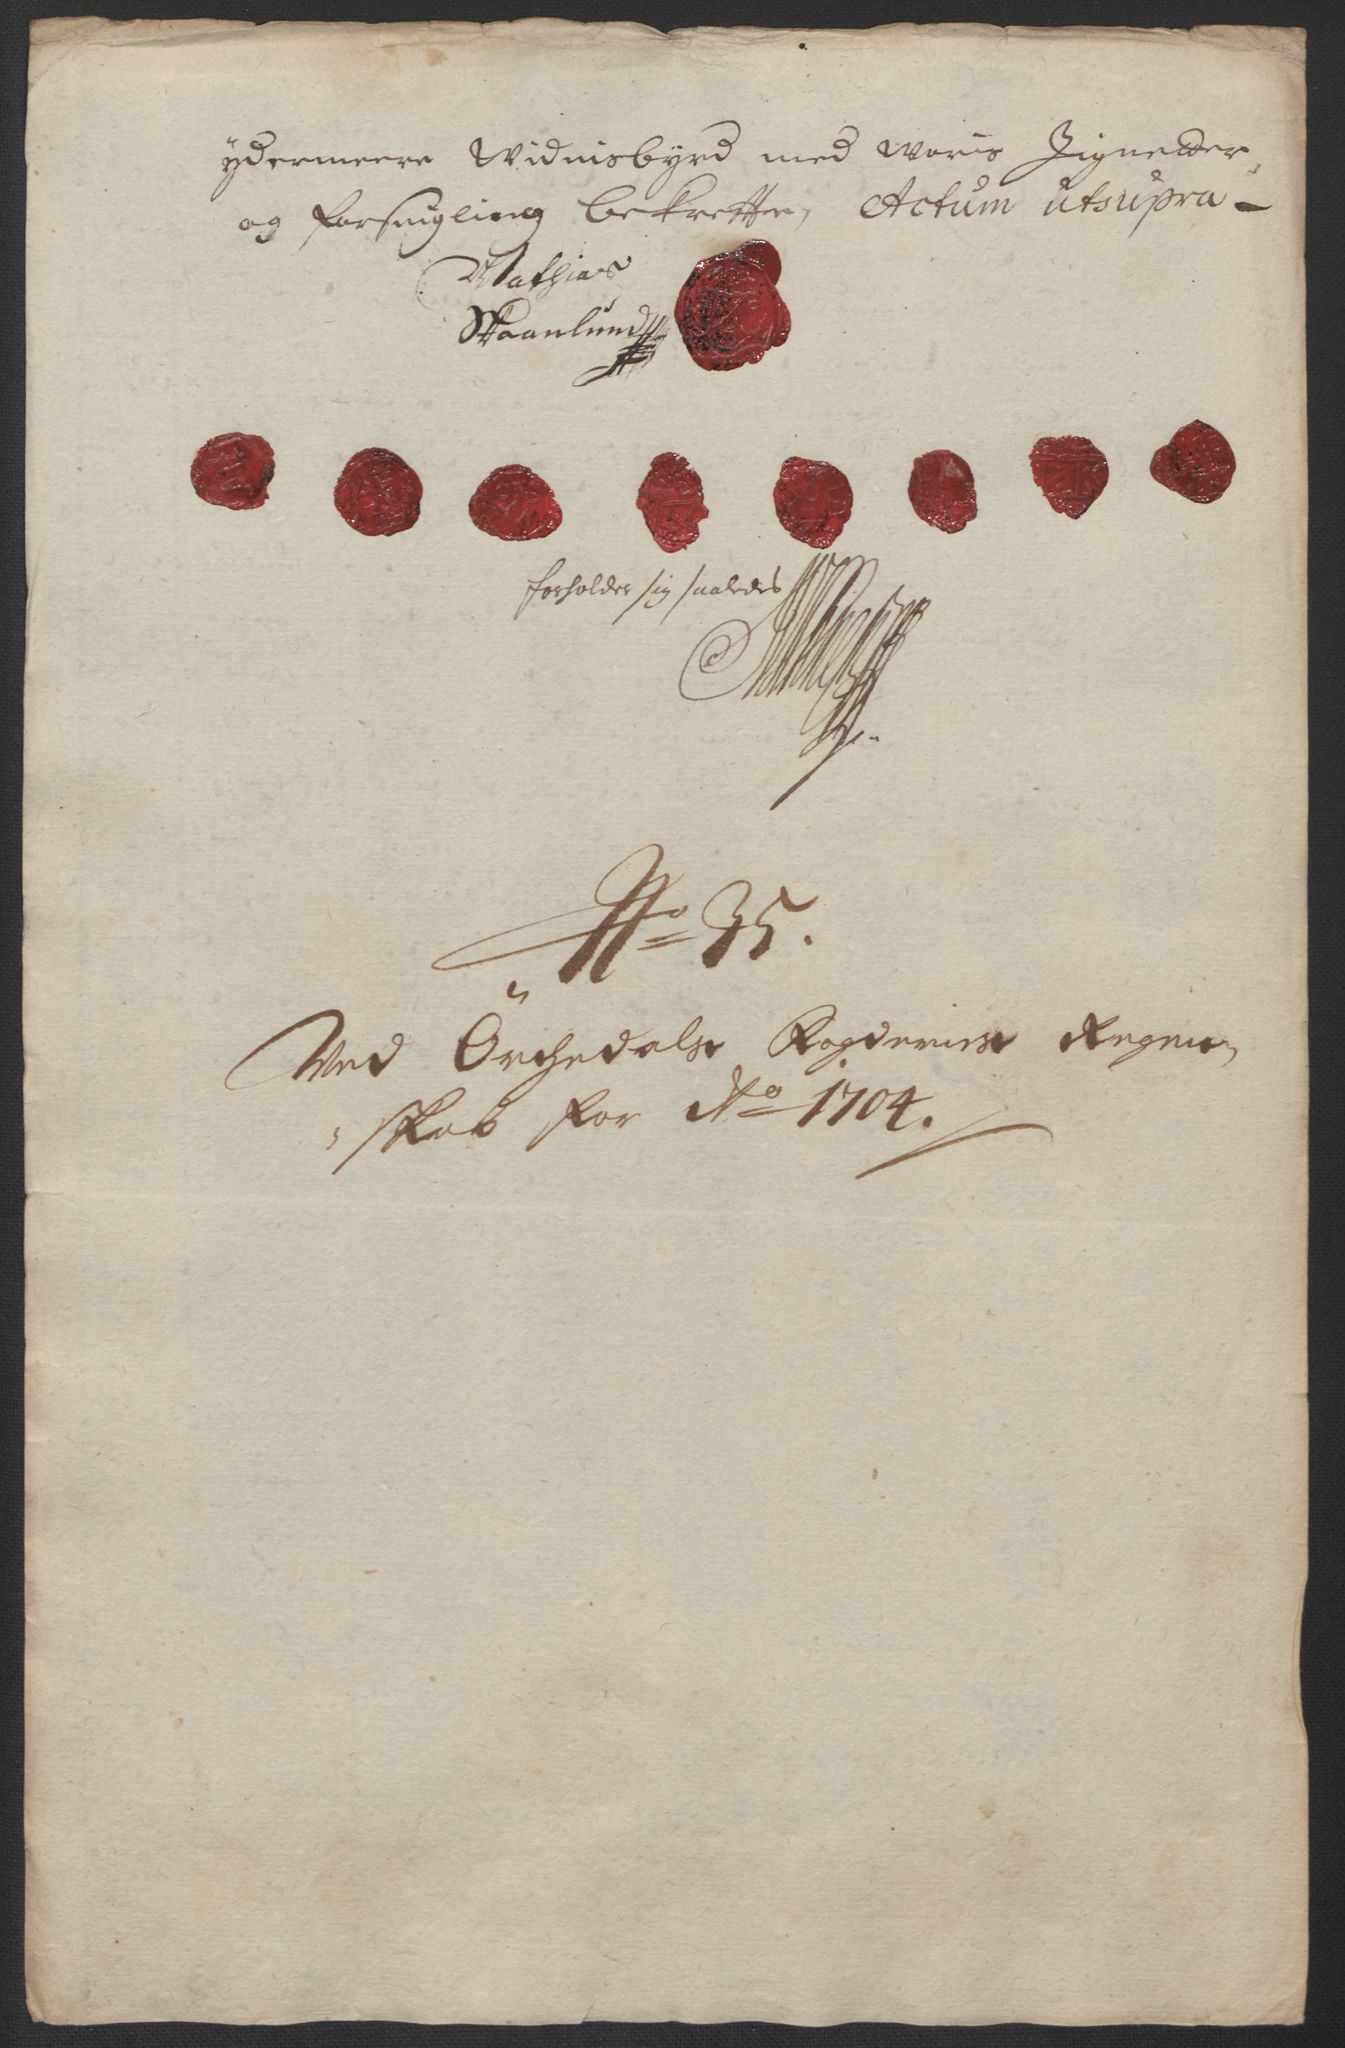 ydermeere Widnisbyrd med woris Zignetter
og forseigling bekrefter, Actum ut supra
Mathias
Skaanlund
forholder sig saaledes
No 35.
Ved Örchedals Fogderies Regen-
skab for Ao 1704.